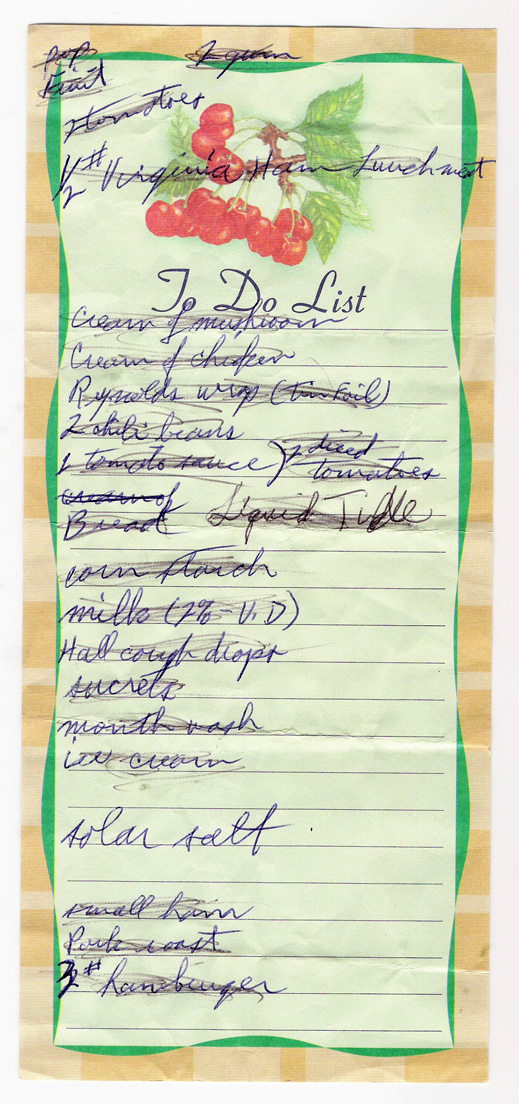 pop 2 gum
Fruit
tomatoes
1/2 # Virginia Ham Lunchmeat
To Do List
Cream of mushroom
Cream of chicken
Reynolds wrap (tin foil)
2 chili beans
1 tomato sauce) 2 diced tomatoes
cream of
Bread Liquid Tide
corn starch
milk (2% - V.D)
Hall cough drops
sucrets
mouth wash
ice cream
solar salt
small ham
Pork roast
3 # hamburger